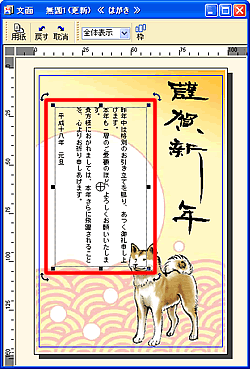 文面 無題1(更新) ≪ はがき ≫
用紙 戻す 取消 全体表示 枠
謹賀新年
昨年中は格別のお引き立てを賜り、あつく御礼申し上
げます。
本年も一層のご愛顧のほど、よろしくお願いいたしま
す。
貴方様におかれましては、本年さらに飛躍されること
を、心よりお祈り申しあげます。
平成十八年　元旦